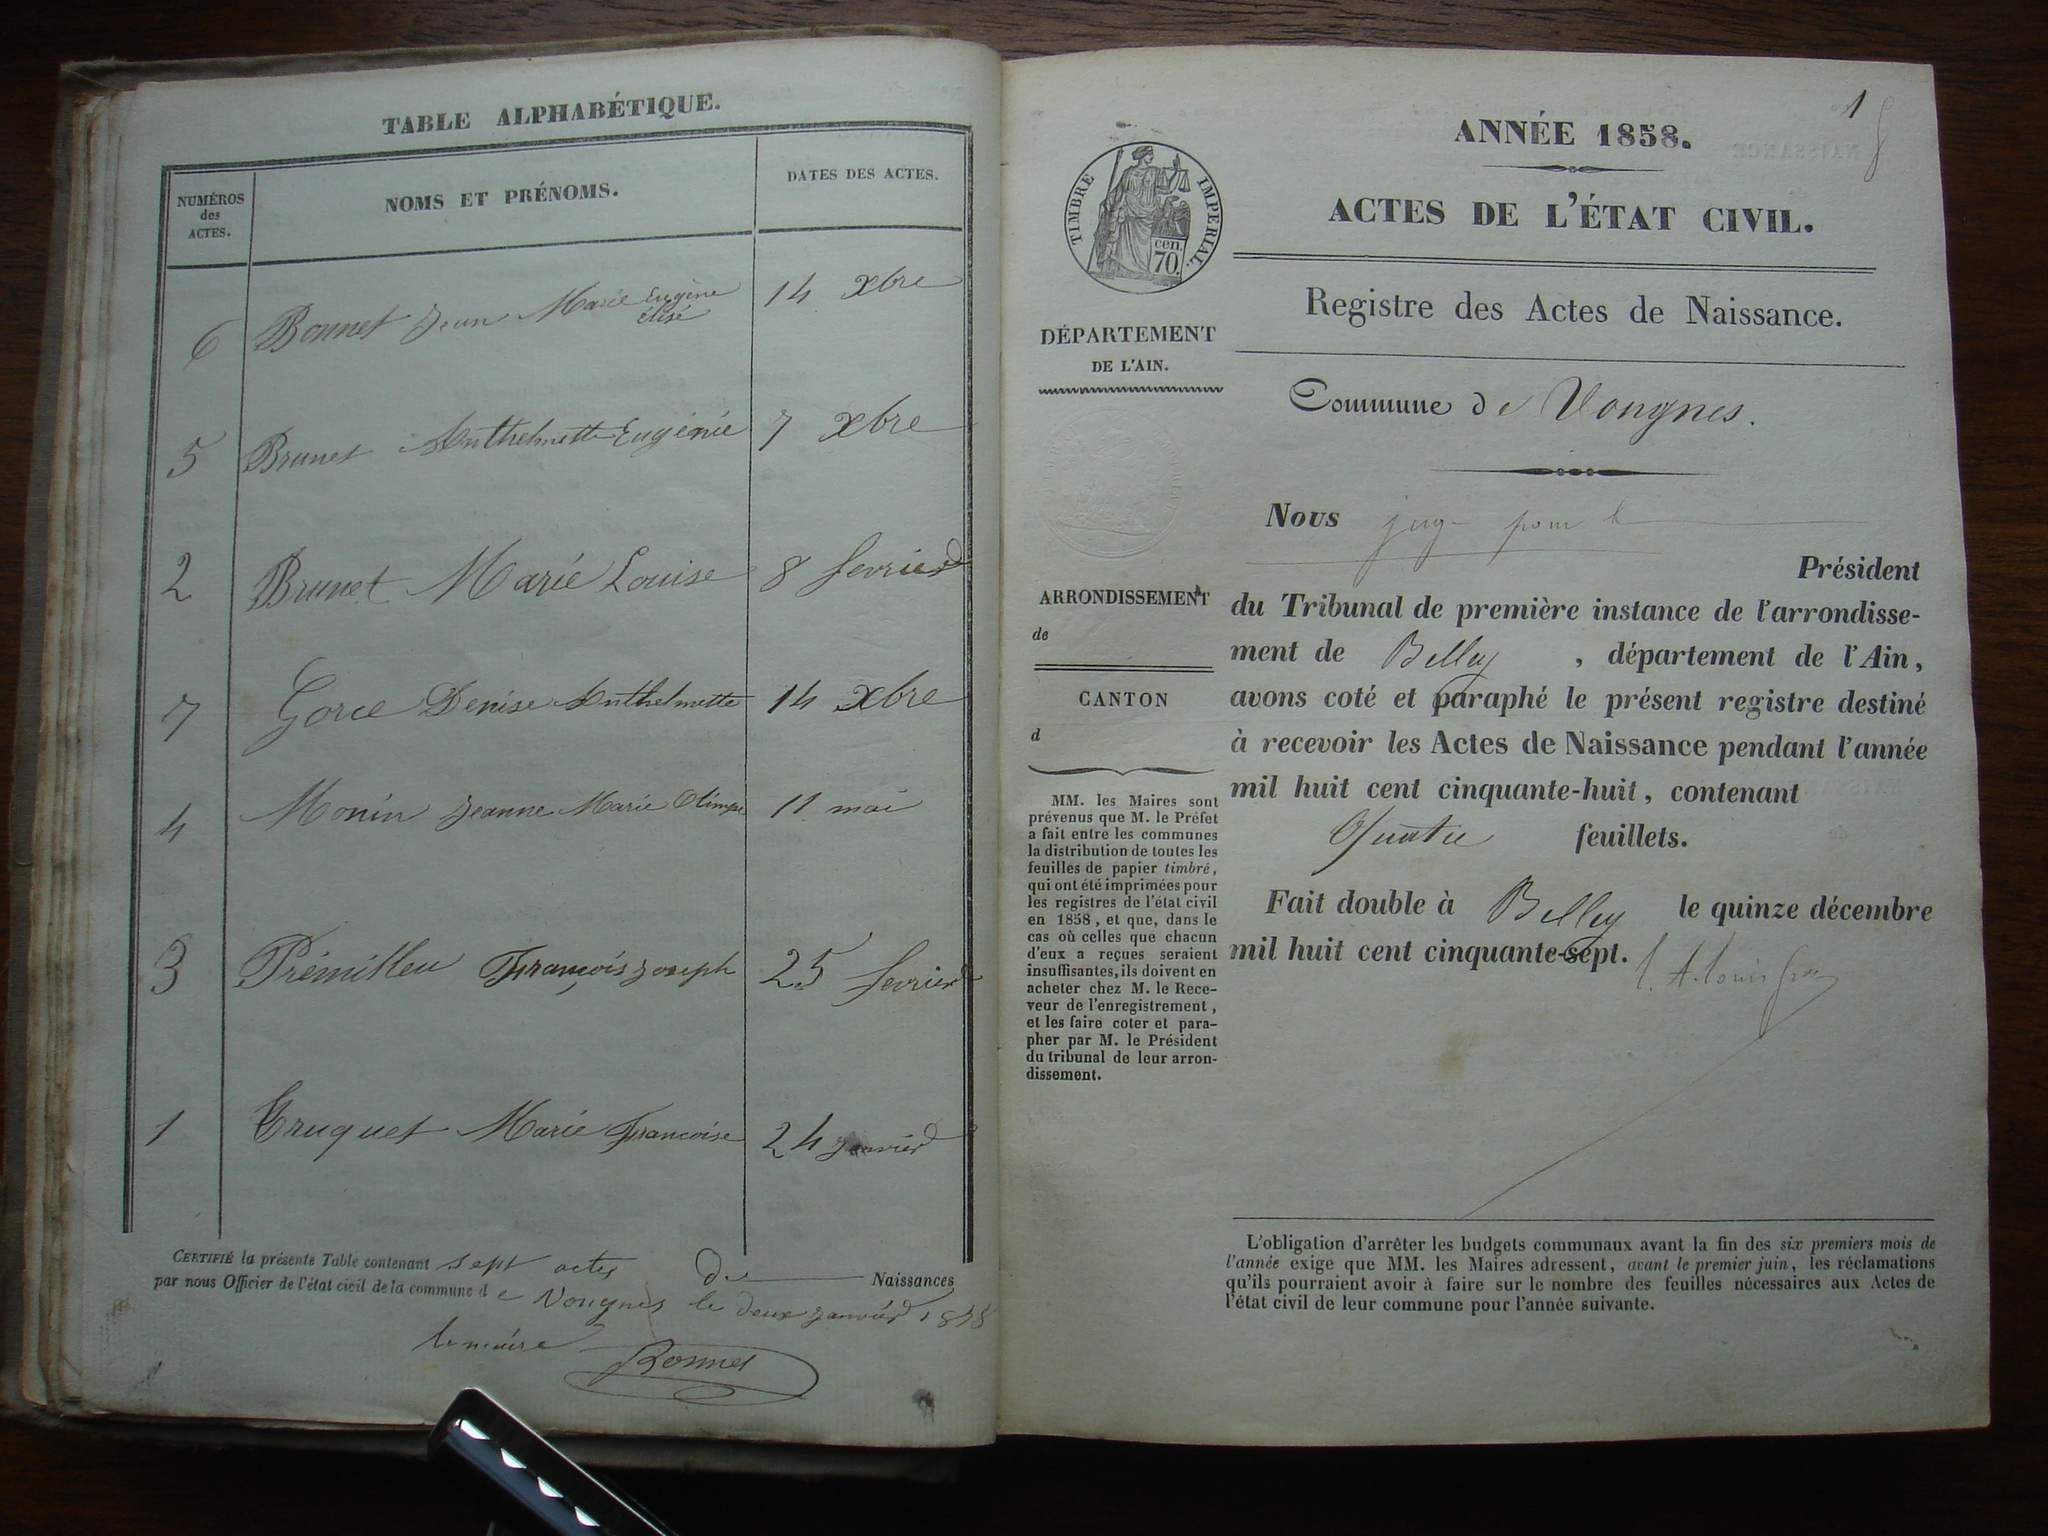 TABLE ALPHABÉTIQUE.
NUMÉROS
des
ACTES.
NOMS ET PRÉNOMS.
DATES DES ACTES.
6 Bonnet Jean Marie Eugène 14 xbre
élisé
5 Brunet Anthelmette Eugénie 7 xbre
2 Brunet Marie Louise 8 fevrier
7 Gorce Denise Anthelmette 14 xbre
4 Monin Jeanne Marie Olimpe 11 mai
3 Prémilleu François Joseph 25 fevrier
1 Truquet Marie Francoise 24 janvier
CERTIFIÉ la présente Table contenant sept actes de Naissances
par nous Officier de l'état civil de la commune de Vongnes le deux janvier 1858
le maire
Bonnet
1
ANNÉE 1858.
ACTES DE L'ÉTAT CIVIL.
Registre des Actes de Naissance.
Commune de Vongnes.
TIMBRE IMPERIAL.
cen.
70.
DÉPARTEMENT
DE L'AIN.
ARRONDISSEMENT
de
CANTON
d
MM. les Maires sont
prévenus que M. le Préfet
a fait entre les communes
la distribution de toutes les
feuilles de papier timbré,
qui ont été imprimées pour
les registres de l'état civil
en 1858, et que, dans le
cas où celles que chacun
d'eux a reçues seraient
insuffisantes, ils doivent en
acheter chez M. le Rece-
veur de l'enregistrement,
et les faire coter et para-
pher par M. le Président
du tribunal de leur arron-
dissement.
Nous juge pour le
Président
du Tribunal de première instance de l'arrondisse-
ment de Belley, département de l'Ain,
avons coté et paraphé le présent registre destiné
à recevoir les Actes de Naissance pendant l'année
mil huit cent cinquante-huit, contenant
Quatre feuillets.
Fait double à Belley le quinze décembre
mil huit cent cinquante-sept.
L'obligation d'arrêter les budgets communaux avant la fin des six premiers mois de
l'année exige que MM. les Maires adressent, avant le premier juin, les réclamations
qu'ils pourraient avoir à faire sur le nombre des feuilles nécessaires aux Actes de
l'état civil de leur commune pour l'année suivante.